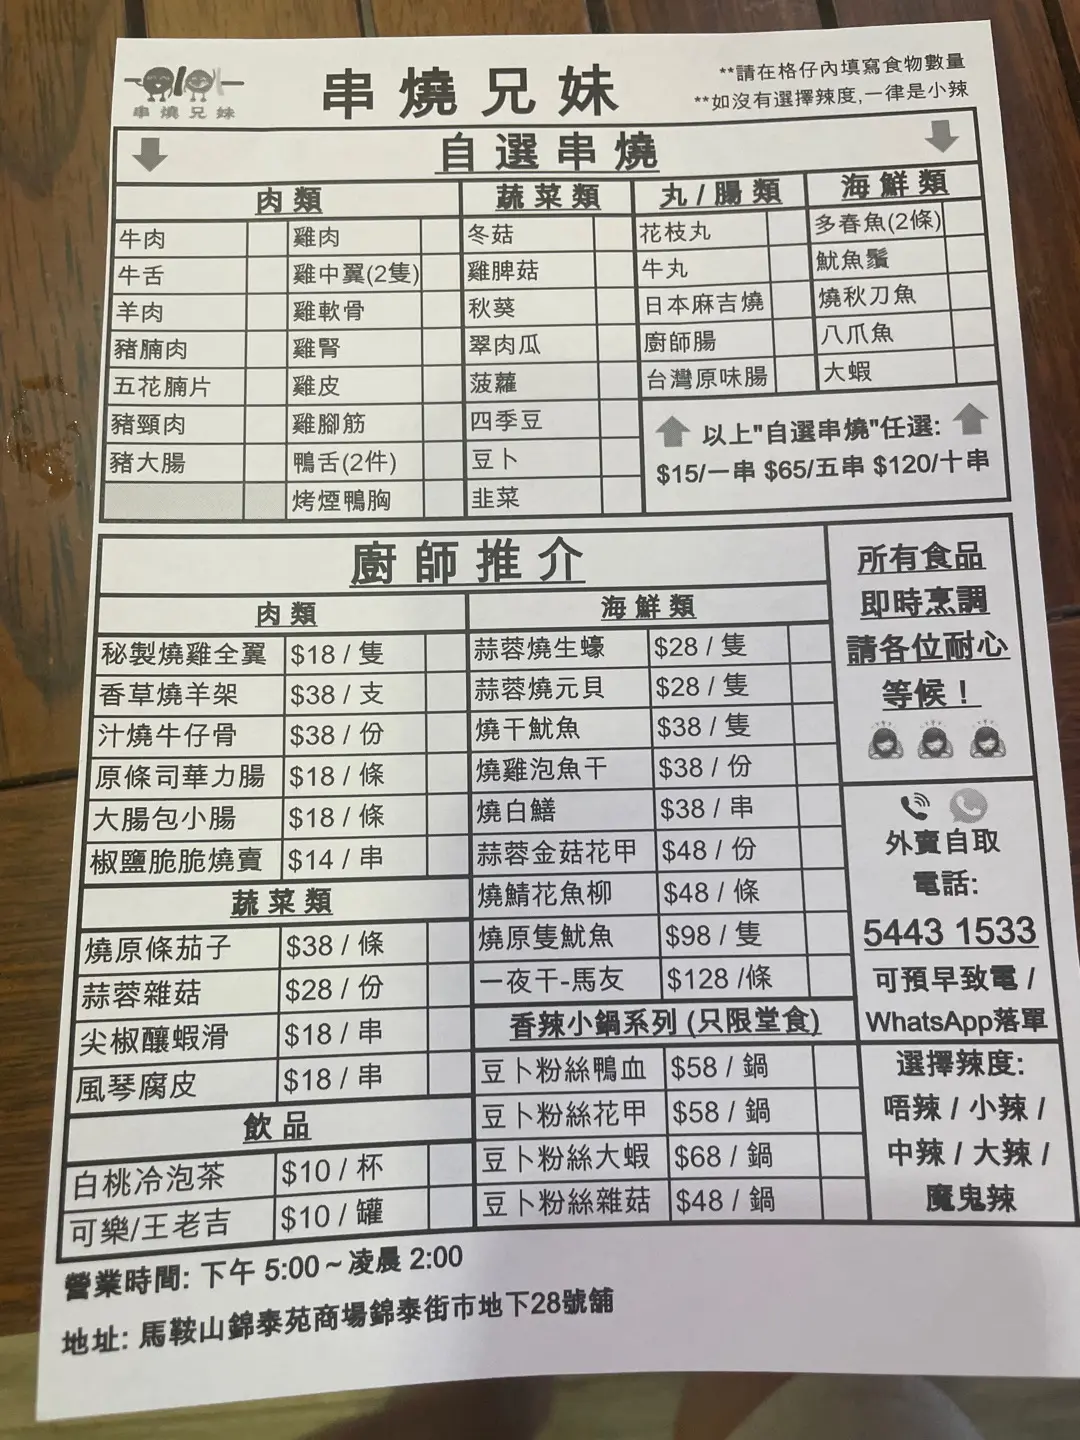 串燒兄妹
串燒兄妹
**請在格仔內填寫食物數量
**如沒有選擇辣度,一律是小辣
自選串燒
肉類
牛肉 雞肉
牛舌 雞中翼(2隻)
羊肉 雞軟骨
豬腩肉 雞腎
五花腩片 雞皮
豬頸肉 雞腳筋
豬大腸 鴨舌(2件)
烤煙鴨胸
蔬菜類
冬菇
雞脾菇
秋葵
翠肉瓜
菠蘿
四季豆
豆卜
韭菜
丸/腸類
花枝丸
牛丸
日本麻吉燒
廚師腸
台灣原味腸
海鮮類
多春魚(2條)
魷魚鬚
燒秋刀魚
八爪魚
大蝦
以上"自選串燒"任選:
$15/一串 $65/五串 $120/十串
廚師推介
肉類
秘製燒雞全翼 $18 / 隻
香草燒羊架 $38 / 支
汁燒牛仔骨 $38 / 份
原條司華力腸 $18 / 條
大腸包小腸 $18 / 條
椒鹽脆脆燒賣 $14 / 串
蔬菜類
燒原條茄子 $38 / 條
蒜蓉雜菇 $28 / 份
尖椒釀蝦滑 $18 / 串
風琴腐皮 $18 / 串
飲品
白桃冷泡茶 $10 / 杯
可樂/王老吉 $10 / 罐
海鮮類
蒜蓉燒生蠔 $28 / 隻
蒜蓉燒元貝 $28 / 隻
燒干魷魚 $38 / 隻
燒雞泡魚干 $38 / 份
燒白鱔 $38 / 串
蒜蓉金菇花甲 $48 / 份
燒鯖花魚柳 $48 / 條
燒原隻魷魚 $98 / 隻
一夜干-馬友 $128 /條
香辣小鍋系列 (只限堂食)
豆卜粉絲鴨血 $58 / 鍋
豆卜粉絲花甲 $58 / 鍋
豆卜粉絲大蝦 $68 / 鍋
豆卜粉絲雜菇 $48 / 鍋
所有食品
即時烹調
請各位耐心
等候！
外賣自取
電話:
5443 1533
可預早致電 /
WhatsApp落單
選擇辣度:
唔辣 / 小辣 /
中辣 / 大辣 /
魔鬼辣
營業時間: 下午 5:00～凌晨 2:00
地址: 馬鞍山錦泰苑商場錦泰街市地下28號舖